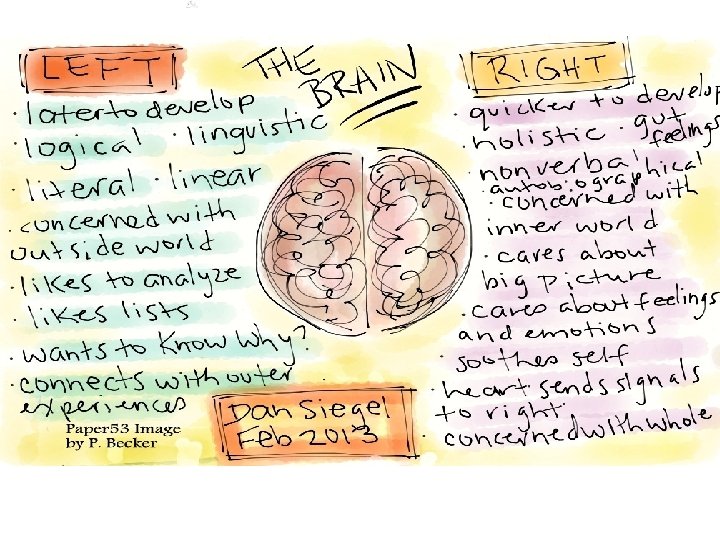 LEFT
THE
BRAIN
RIGHT
· later to develop
· logical · linguistic
· literal · linear
· concerned with
outside world
· likes to analyze
· likes lists
· wants to know why?
· connects with outer
experiences
Paper53 Image
by P. Becker
Dan Siegel
Feb 2013
· quicker to develop
· holistic · gut
feelings
· nonverbal
· autobiographical
· concerned with
inner world
· cares about
big picture
· cares about feelings
and emotions
· soothes self
· heart sends signals
to right.
· concerned with whole